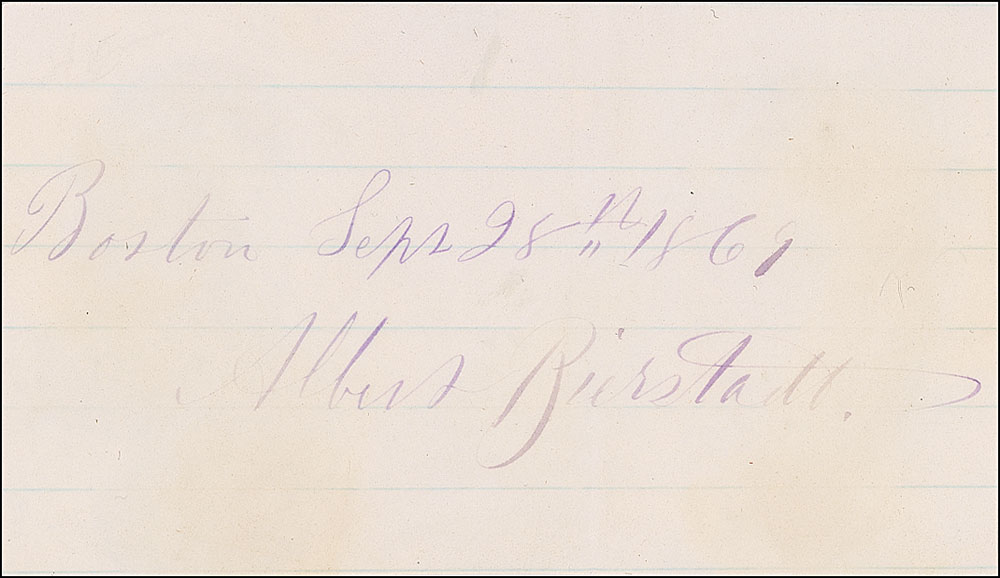 Boston Sept 28th 1869
Albert Bierstadt.